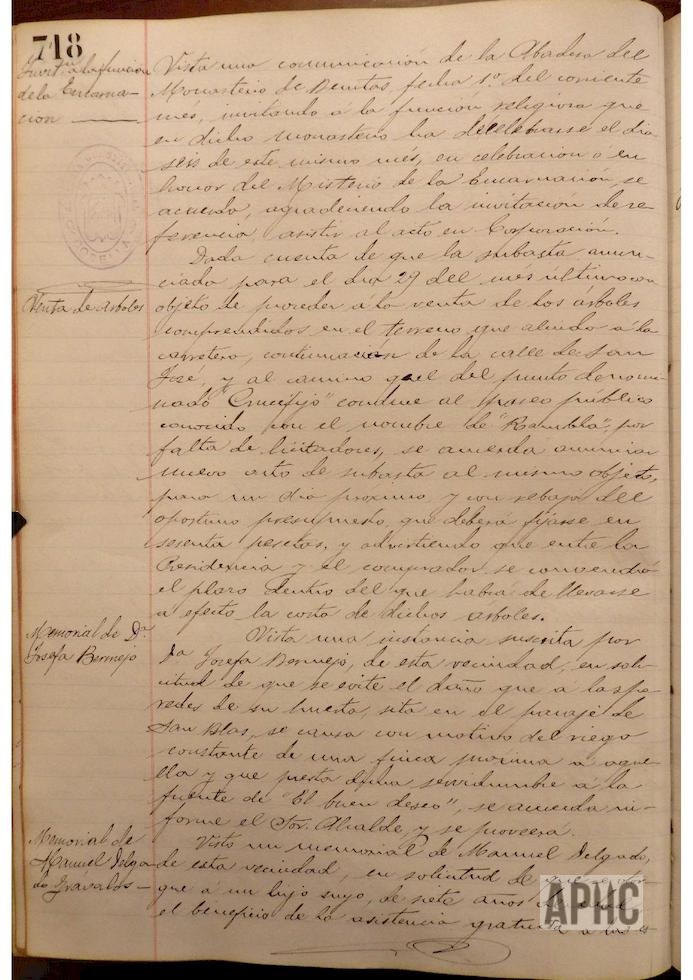 718
Invitn. a la funcion
de la Encarna-
cion
Vista una comunicación de la Abadesa del
Monasterio de Benitas, fecha 1º. del corriente
més, invitando á la funcion religiosa que
en dicho monasterio ha de celebrarse el dia
seis de este mismo més, en celebracion ó en
honor del Misterio de la Encarnación, se
acuerda, agradeciendo la invitacion de re-
ferencia, asistir al acto en Corporación.
Venta de arboles
Dada cuenta de que la subasta anun-
ciada para el dia 29 del mes ultimo con
objeto de proceder á la venta de los árboles
comprendidos en el terreno que alinda á la
carretera, continuación de la calle de San
José, y al camino que del punto denomi-
nado "Crucifijo" conduce al paseo público
conocido con el nombre de "Rambla", por
falta de licitadores, se acuerda anunciar
nuevo acto de subasta al mismo objeto,
para un dia proximo, y con rebaja del
oportuno presupuesto, que deberá fijarse en
sesenta pesetas, y advirtiendo que entre la
Presidencia y el comprador se convendrá
el plazo dentro del que habrá de llevarse
a efecto la corta de dichos arboles.
Memorial de Dª.
Josefa Bermejo
Vista una instancia suscrita por
Dª Josefa Bermejo, de esta vecindad, en soli-
citud de que se evite el daño que a las pa-
redes de su huerta, sita en el paraje de
San Blas, se causa con motivo del riego
constante de una finca proxima a aque-
lla y que presta dicha servidumbre á la
fuente de "El buen deseo", se acuerda in-
forme el Sor. Alcalde, y se proveera.
Memorial de
Manuel Delga-
do Gravalos
Visto un memorial de Manuel Delgado,
de esta vecindad, en solicitud de que se otor-
gue á un hijo suyo, de siete años de edad
el beneficio de la asistencia gratuita a las es
APHC